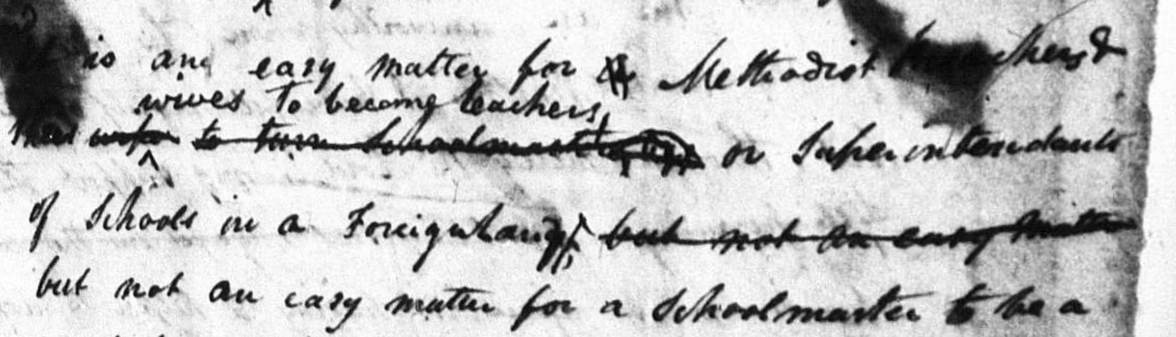 is an easy matter for a Methodist Preachers &
wives to become teachers
their wife to turn Schoolmaster or Superintendants
of Schools in a Foreign Land, but not an easy matter
but not an easy matter for a Schoolmaster to be a